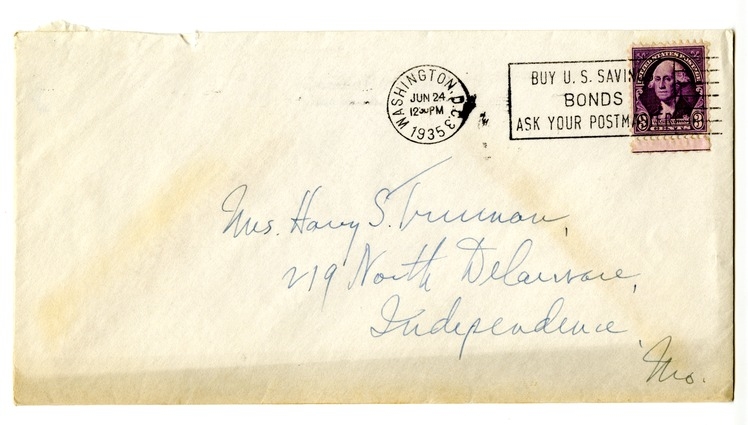 WASHINGTON, D.C. 3
JUN 24
12 30 PM
1935
BUY U.S. SAVIN
BONDS
ASK YOUR POSTMA
UNITED STATES POSTAGE
3 CENTS 3
Mrs. Harry S. Truman,
219 North Delaware,
Independence
Mo.